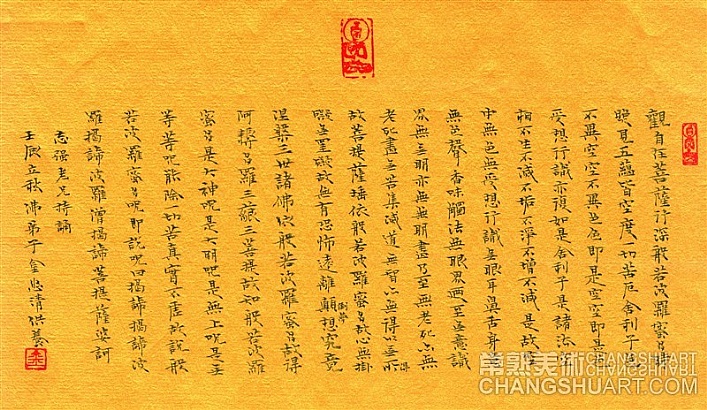 觀自在菩薩行深般若波羅蜜多時
照見五蘊皆空度一切苦厄舍利子色
不異空空不異色色即是空空即是色
受想行識亦復如是舍利子是諸法空
相不生不滅不垢不淨不增不減是故空
中無色無受想行識無眼耳鼻舌身意
無色聲香味觸法無眼界乃至無意識
界無無明亦無無明盡乃至無老死亦無
老死盡無苦集滅道無智亦無得以無所得
故菩提薩埵依般若波羅蜜多故心無掛
礙無罣礙故無有恐怖遠離顛倒夢想究竟
涅槃三世諸佛依般若波羅蜜多故得
阿耨多羅三藐三菩提故知般若波羅
蜜多是大神呪是大明呪是無上呪是無
等等呪能除一切苦真實不虛故說般
若波羅蜜多呪即說呪曰揭諦揭諦波
羅揭諦波羅僧揭諦菩提薩婆訶
志强老兄持誦
壬辰立秋佛弟子金清供養
常熟美術
CHANGSHUART
CHANGSHUART.COM